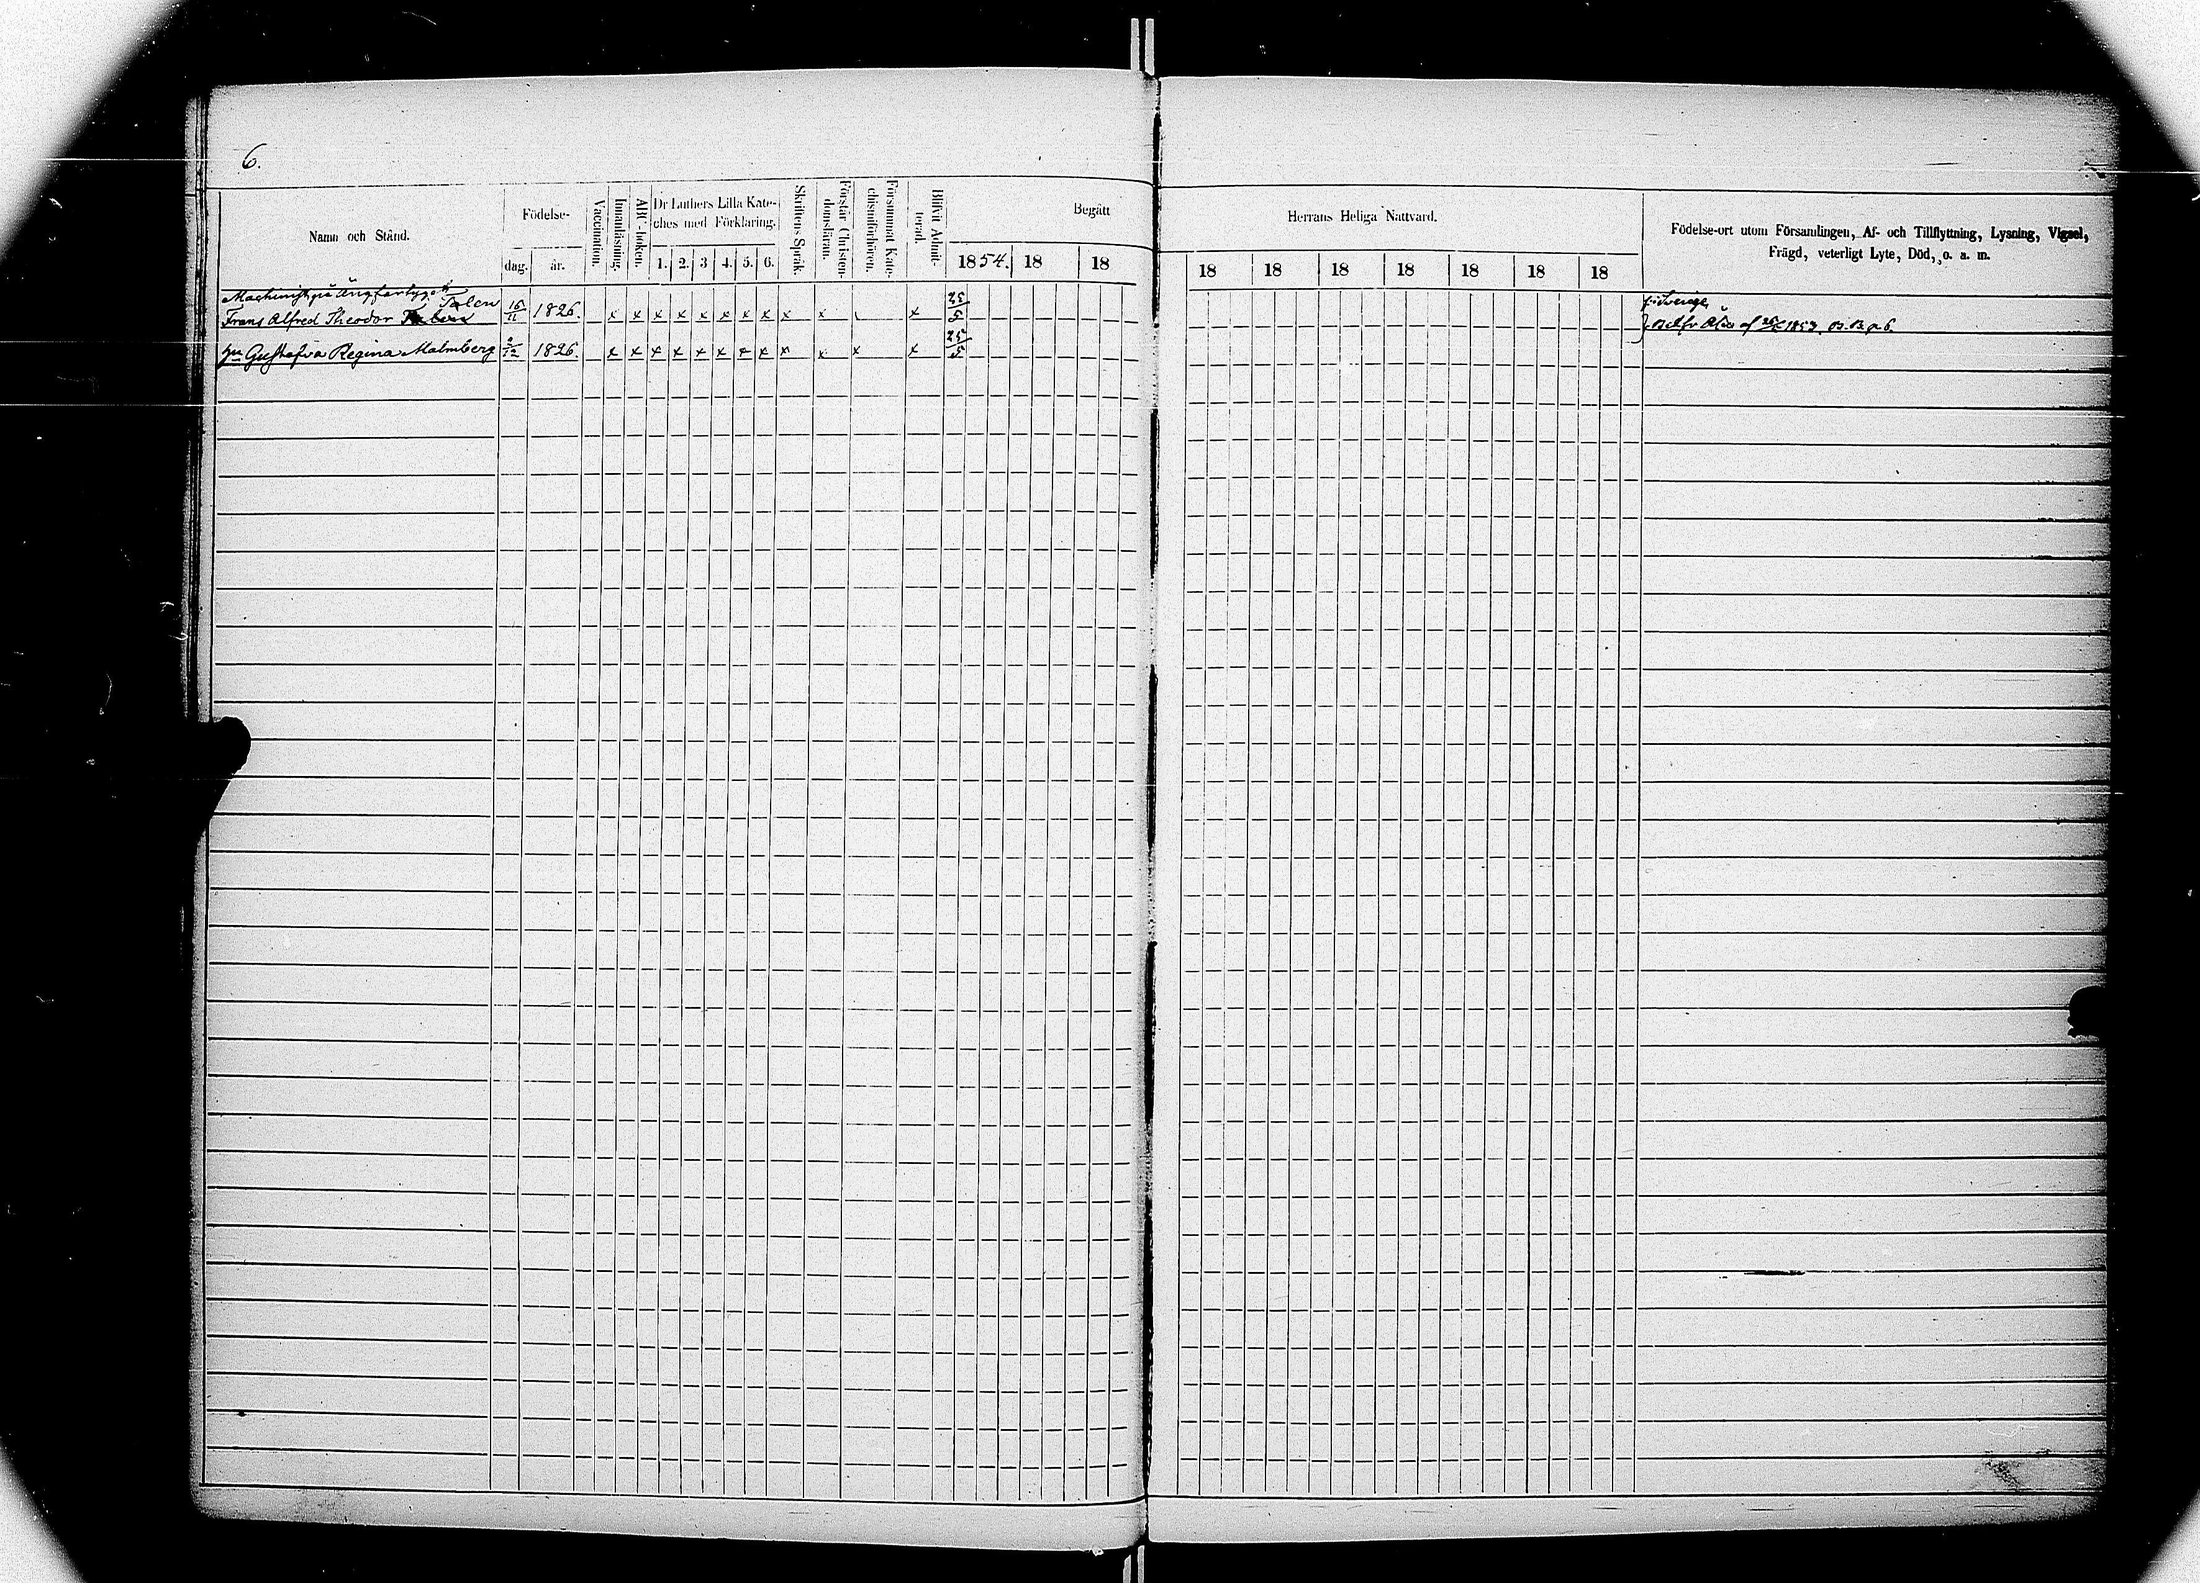 6.
Namn och Stånd.
Födelse-
dag.
år.
Vaccination.
Innanläsning.
ABC-boken.
Dr Luthers Lilla Kate-
ches med Förklaring.
1. 2. 3 4. 5. 6.
Skriftens Språk.
Förstår Christen-
domsläran.
Försummat Kate-
chismiförhören.
Blifvit Admit-
terad.
Begått
1854. 18 18
Herrans Heliga Nattvard.
18 18 18 18 18 18 18
Födelse-ort utom Församlingen, Af- och Tillflyttning, Lysning, Vigsel,
Frägd, veterligt Lyte, Död, o. a. m.
Machinist på Ångfartyget
Frans Alfred Theodor Talen 15/11 1826. x x x x x x x x x x x 25/5
hu Gustafva Regina Malmberg 2/12 1826. x x x x x x x x x x x x 25/5
f. i Sverige
1853. 6.